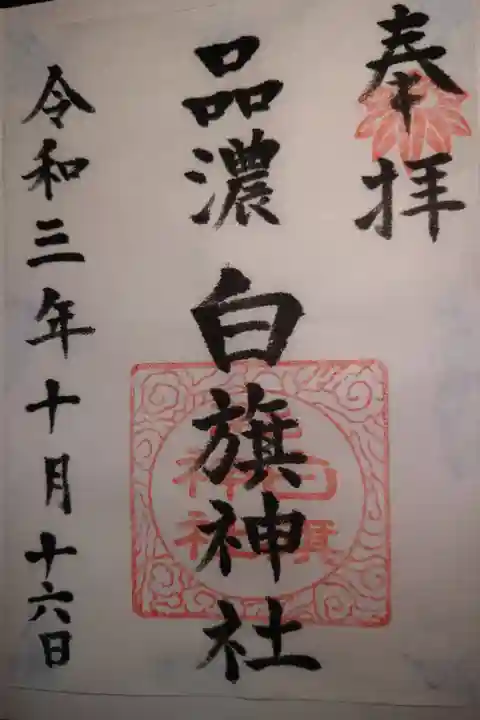 奉拝
品濃 白旗神社
令和三年十月十六日